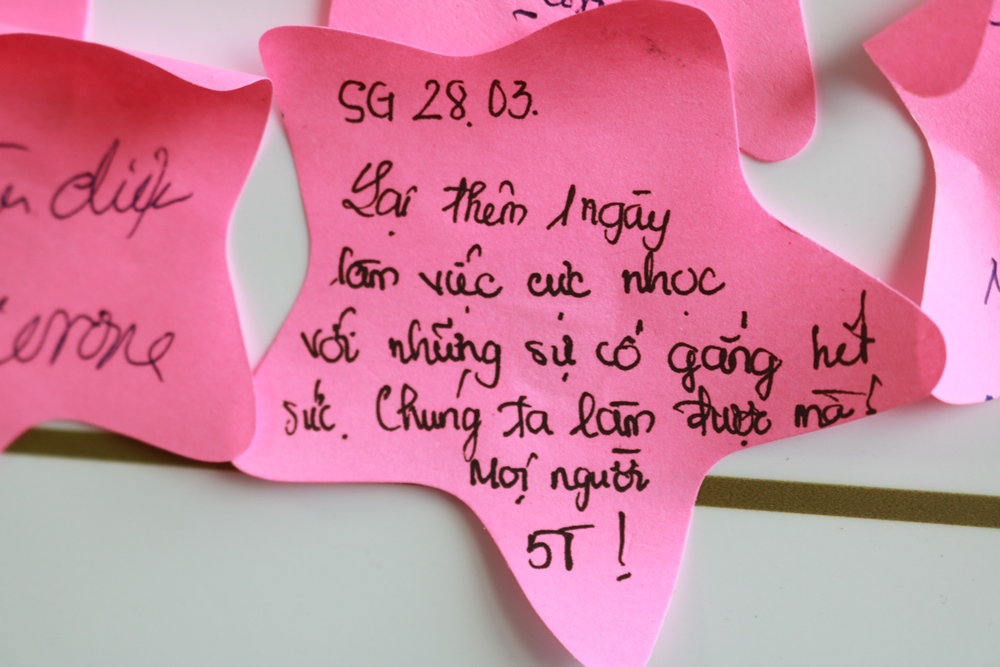 SG 28.03.
Lại thêm 1 ngày
làm việc cực nhọc
với những sự cố gắng hết
sức. Chúng ta làm được mà!
Mọi người
5T !
diệp